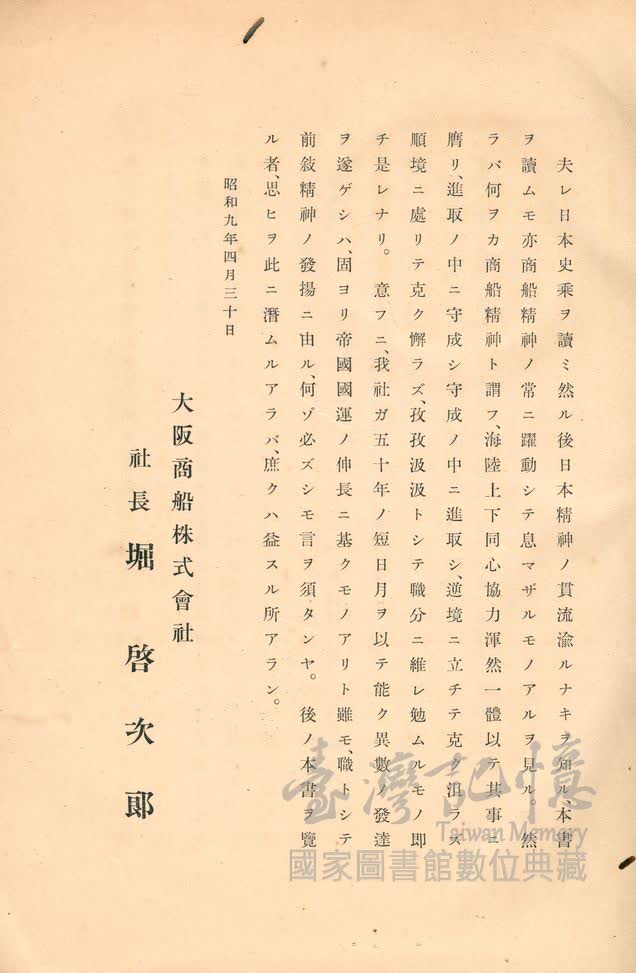 夫レ日本史乘ヲ讀ミ然ル後日本精神ノ貫流渝ルナキヲ知ル、本書
ヲ讀ムモ亦商船精神ノ常ニ躍動シテ息マザルモノアルヲ見ル。然
ラバ何ヲカ商船精神ト謂フ、海陸上下同心協力渾然一體以テ其事ニ
膺リ、進取ノ中ニ守成シ守成ノ中ニ進取シ、逆境ニ立チテ克ク沮ラズ
順境ニ處リテ克ク懈ラズ、孜孜汲汲トシテ職分ニ維レ勉ムルモノ即
チ是レナリ。意フニ、我社ガ五十年ノ短日月ヲ以テ能ク異數ノ發達
ヲ遂ゲシハ、固ヨリ帝國國運ノ伸長ニ基クモノアリト雖モ、職トシテ
前敍精神ノ發揚ニ由ル、何ゾ必ズシモ言ヲ須タンヤ。後ノ本書ヲ覽
ル者、思ヒヲ此ニ潛ムルアラバ、庶クハ益スル所アラン。
昭和九年四月三十日
大阪商船株式會社
社長 堀啓次郎
臺灣記憶
Taiwan Memory
國家圖書館數位典藏